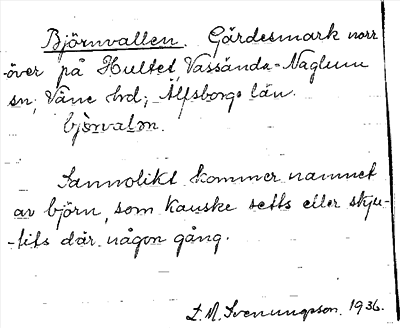 Björnvallen. Gärdesmark norr
över på Hultet, Vassända-Naglum
sn; Väne hd; Älfsborgs län.
bjö̀rvalən.
Sannolikt kommer namnet
av björn, som kanske setts eller skju-
-tits där någon gång.
L. M. Svenungsson. 1936.